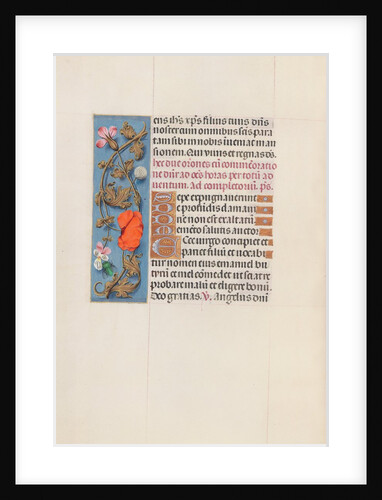 ens ihs xps filius tuus dns
noster cum omnibus scis para
tam sibi in nobis inveniat man
sionem. Qui vivit et regnas ds.
hec due oriones cu commeoratio
ne dicun ad oes horas per totu ad
ventum. ad completoriu. ps.
Sepe expugnaverunt
De profundis clamavi
Dne non est exaltatu
Memento salutis auctor.
Ecce virgo concipiet et
pariet filiu et vocabi
tur nomen eius emanuel bu
tyru et mel comedet ut sciat re
probare malu et eligere bonu.
Deo gratias. V. Angelus dni